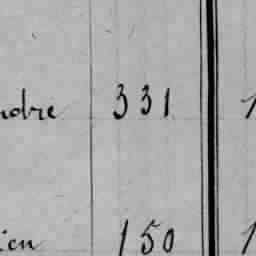 ndre 331 1
ien 150 1